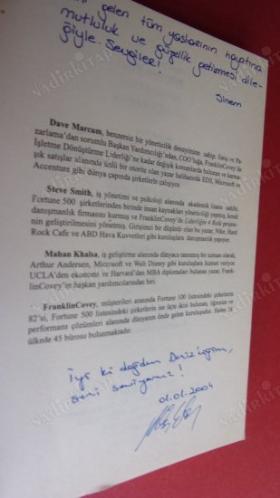 gelen tüm yaşlarının hayatına
mutluluk ve güzellik getirmesi dile-
ğiyle. Sevgiler!
Sinem
Dave Marcum, benzersiz bir yöneticilik deneyimine sahip. Satış ve Pa-
zarlama'dan sorumlu Başkan Yardımcılığı'ndan, COO'luğa, FranklinCovey'de
İşletme Dönüştürme Liderliği'ne kadar değişik konumlarda bulunan ve
çok satışlar alanında ünlü bir otorite olan yazar halihazırda EDS, Microsoft ve
Accenture gibi dünya çapında şirketlerle çalışıyor.
Steve Smith, iş yönetimi ve psikoloji alanında akademik
Fortune 500 şirketlerinden birinde insan kaynakları yöneticiliği yapmış, kendi
danışmanlık firmasını kurmuş ve FranklinCovey'de Liderliğin 4 Rolü
nin geliştirilmesini yönetmiş. Girişimci bir düşünür olan bu yazar, Nike, Hard
Rock Cafe ve ABD Hava Kuvvetleri gibi kuruluşlara danışmanlık yapıyor.
Mahan Khalsa, iş geliştirme alanında dünyaca tanınmış bir uzman olarak,
Arthur Andersen, Microsoft ve Walt Disney gibi kurumlara hizmet veriyor.
UCLA'den ekonomi ve Harvard'dan MBA diplomaları bulunan yazar, Frank-
linCovey'in başkan yardımcılarından biri.
FranklinCovey, müşterileri arasında Fortune 100 listesindeki şirketlerin
82'si, Fortune 500 listesindeki şirketlerin ise üçte ikisi bulunan, öğrenim ve
performans çözümleri alanında dünyanın önde gelen kuruluşudur. Halen
ülkede 45 bürosu bulunmaktadır.
İyi ki doğdun Deniz'ciğim,
seni seviyoruz!
01.01.2004
nadirkitap